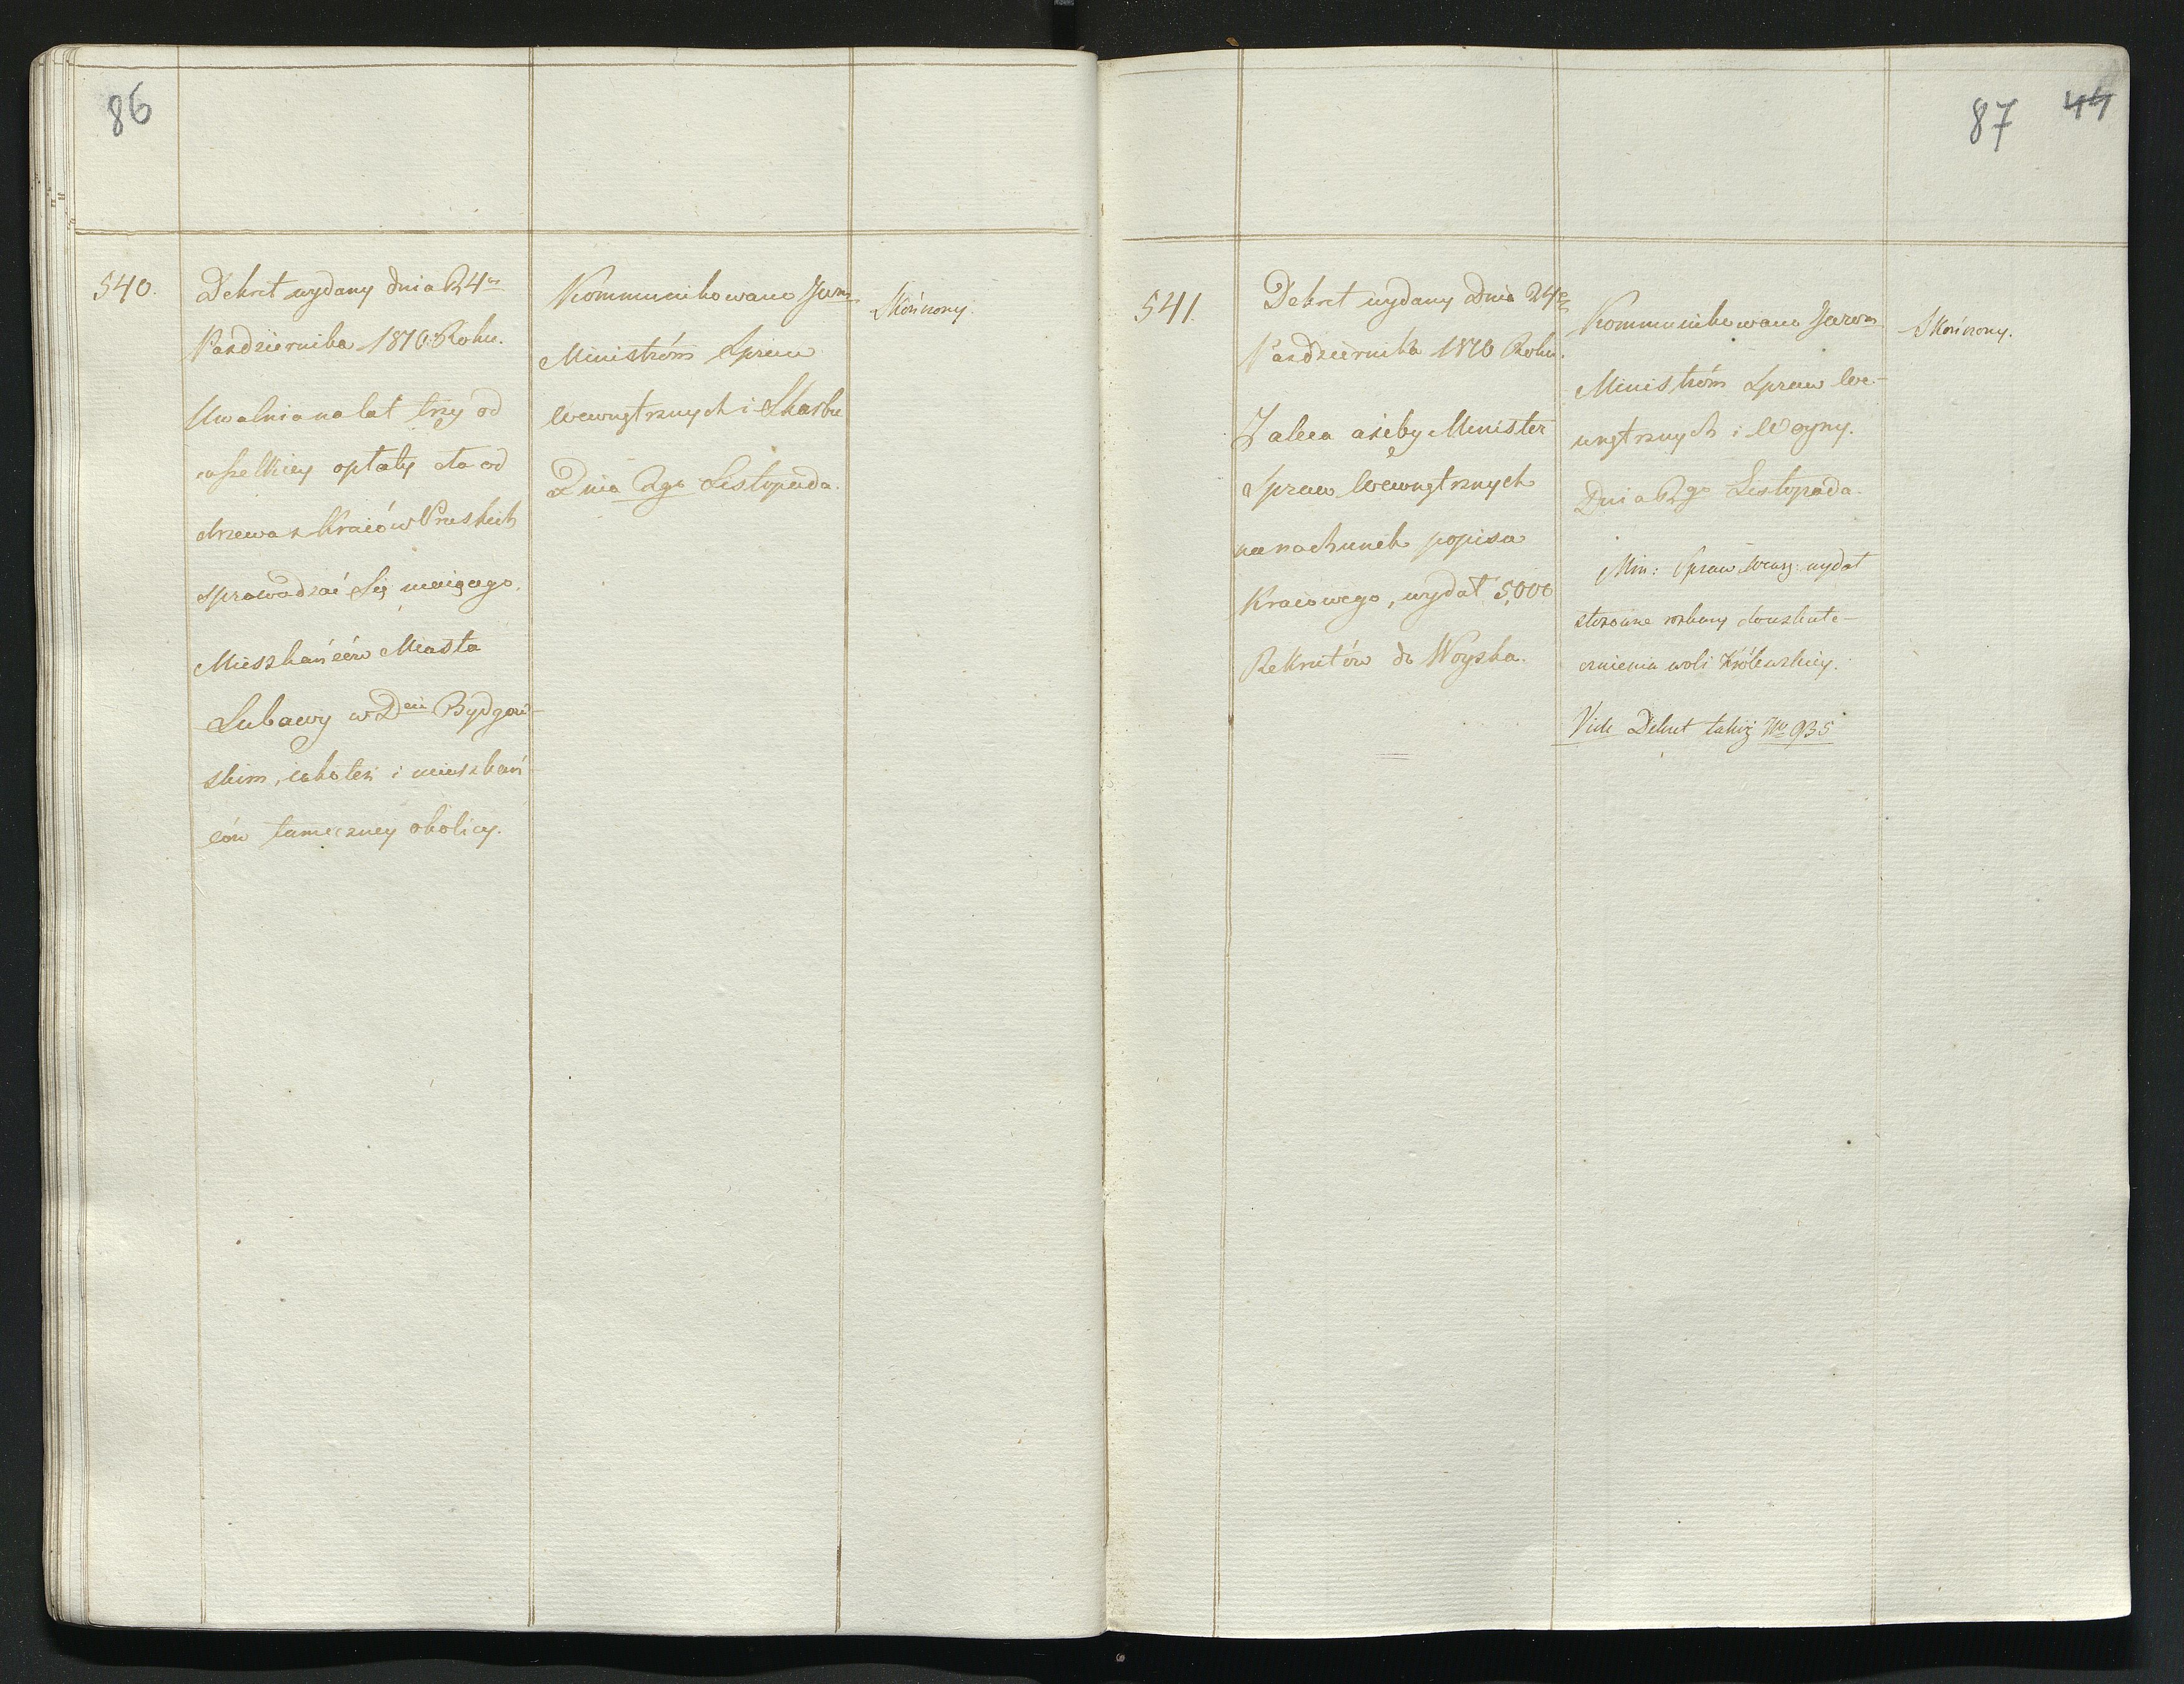 86
540.
Dekret wydany dnia 24go
Pazdziernika 1810. Roku.
Uwalnia na lat trzy od
wszelkiey opłaty cła od
drzewa z Kraiów Pruskich
sprowadzać się maiącego,
Mieszkańców Miasta
Lubawy w Dcie Bydgow-
skim, iakoteż i mieszkań-
ców tameczney okolicy.
Kommunikowano
Ministróm Spraw
Wewnętrznych i Skarbu
Dnia 2go Listopada.
Skończony.
87 44
541.
Dekret wydany Dnia 24go
Pazdziernika 1810 Roku.
Zaleca ażeby Minister
Spraw Wewnętrznych
na rachunek popisu
Kraiowego, wydał 5,000
Rekrutów do Woyska.
Kommunikowano
Ministróm Spraw We-
wnętrznych i Woyny.
Dnia 2go Listopada.
Min: Spraw Wewą: wydał
stosowne rozkazy do uskute-
cznienia woli Królewskiey.
Vide Dekret takiż No 935
Skończony.